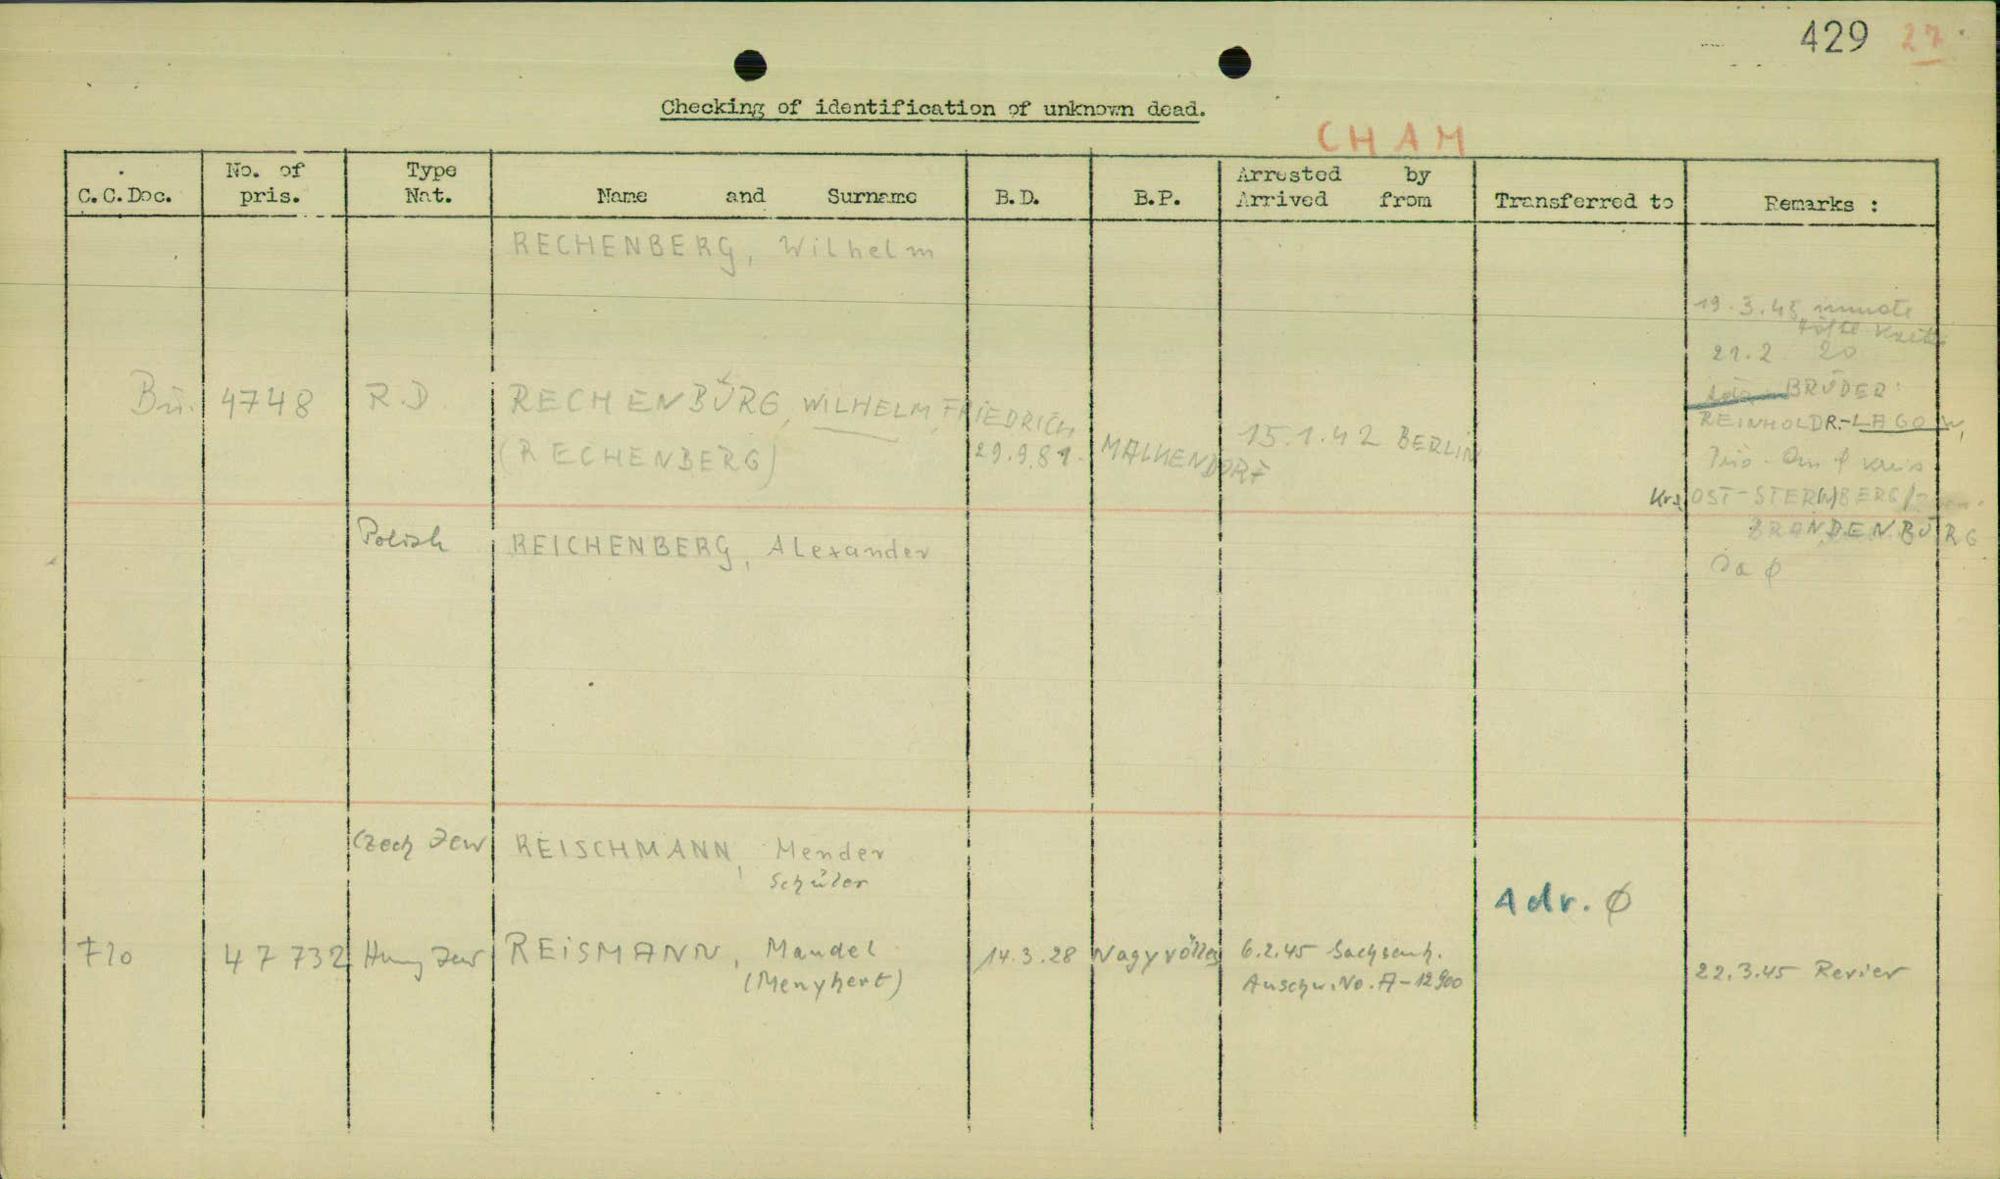 429 27
Checking of identification of unknown dead.
CHAM
C.C.Doc. No. of pris. Type Nat. Name and Surname B.D. B.P. Arrested by Arrived from Transferred to Remarks :
RECHENBERG, Wilhelm
19.3.45
21.2 20
Bu. 4748 R.D. RECHENBŬRG, WILHELM, FRIEDRICH
(RECHENBERG) 29.9.81. MALKENDORF 15.1.42 BERLIN
BRŬDER:
REINHOLD R.-LAGOW,
Krs OST-STERNBERG
BRANDENBŬRG
Polish REICHENBERG, Alexander
Czech Jew REISCHMANN, Mender
Schüler
Adr. Ø
Flo 47732 Hung Jew REISMANN, Mandel
(Menyhert)
14.3.28 6.2.45 Sachsenh.
Auschw. No. A-12900
22.3.45 Revier